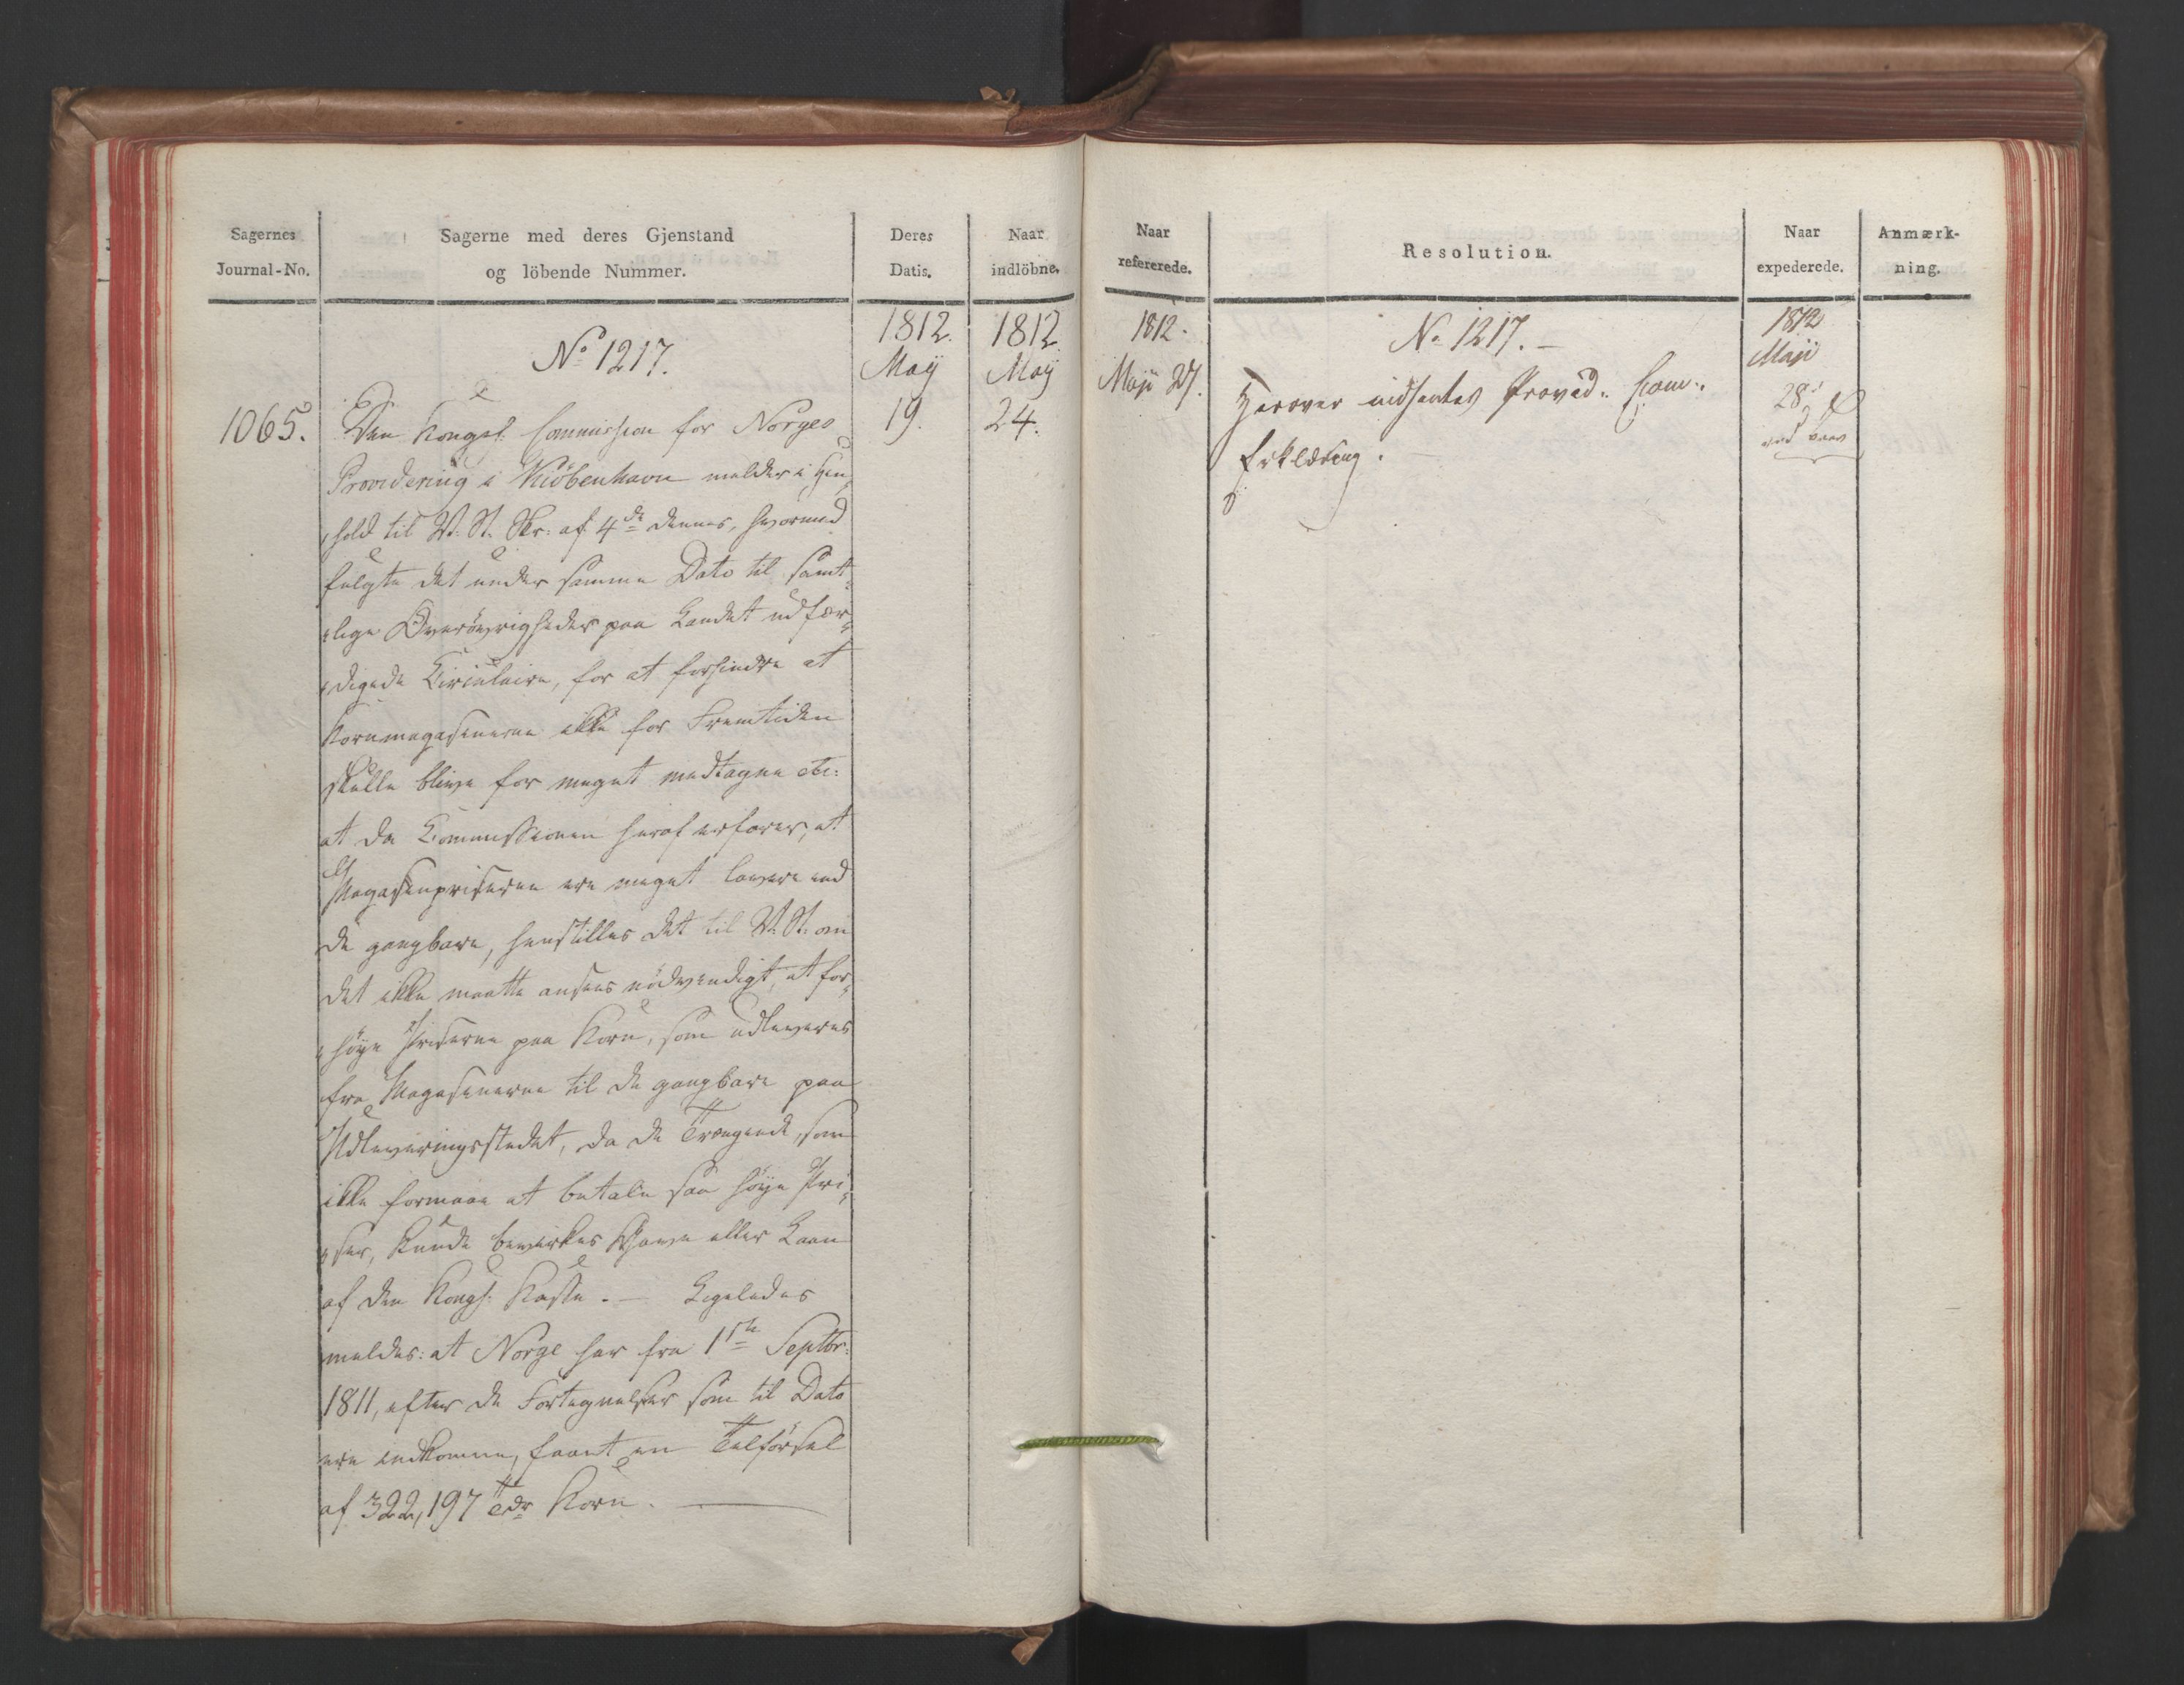 Sagernes
Journal-No.
Sagerne med deres Gjenstand
og löbende Nummer.
Deres
Datis.
Naar
indlöbne.
1812.
May
19.
1812
May
24.
No 1217.
1065.
Den Kongel. Commission for Norges
Providering i Kiöbenhavn melder i Hen„
„hold til V. St. Skr: af 4de dennes, hvormed
fulgte det under samme Dato til samt„
„lige Överövrigheder paa Landet udfær„
„digede Circulaire, for at forhindre at
Kornmagasinerne ikke for Fremtiden
skulle blive for meget medtagne etc:
at da Commissionen heraf erfarer, at
Magasinpriserne ere meget lavere end
de gangbare, henstilles det til V. St. om
det ikke maatte ansees nödvendigt, at for„
„höye Priserne paa Korn, som udleveres
fra Magasinerne til de gangbare paa
Udleveringsstedet, da de Trængende, som
ikke formaae at betale saa höye Pri„
„ser, kunde bevirkes Gave eller Laan
af den Kongl: Kasse. — Ligeledes
meldes: at Norge har fra 1ste Septbr:
1811, efter de Fortegnelser som til Dato
ere indkomne, faaet en Tilförsel
af 322,197 Tdr Korn. —
Naar
refererede.
Resolution.
Naar
expederede.
Anmærk-
ning.
1812.
Maji 27.
No 1217. —
Herover indhentes Provid.: Com:
Erklæring. —
1812
Maji
28